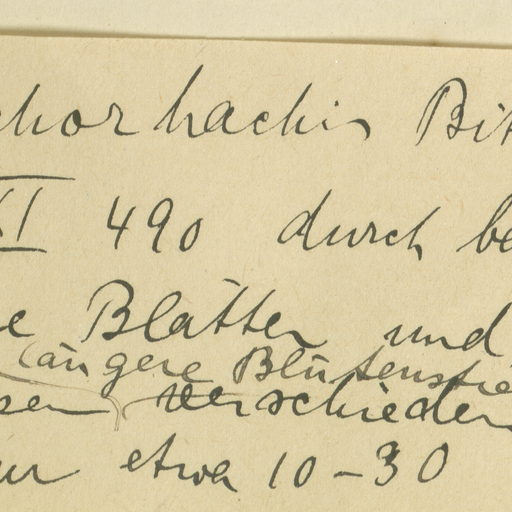 chorhachis Bit
XI 490 durch be
e Blätter und
längere Blütenstie
sen verschieden
ur etwa 10-30